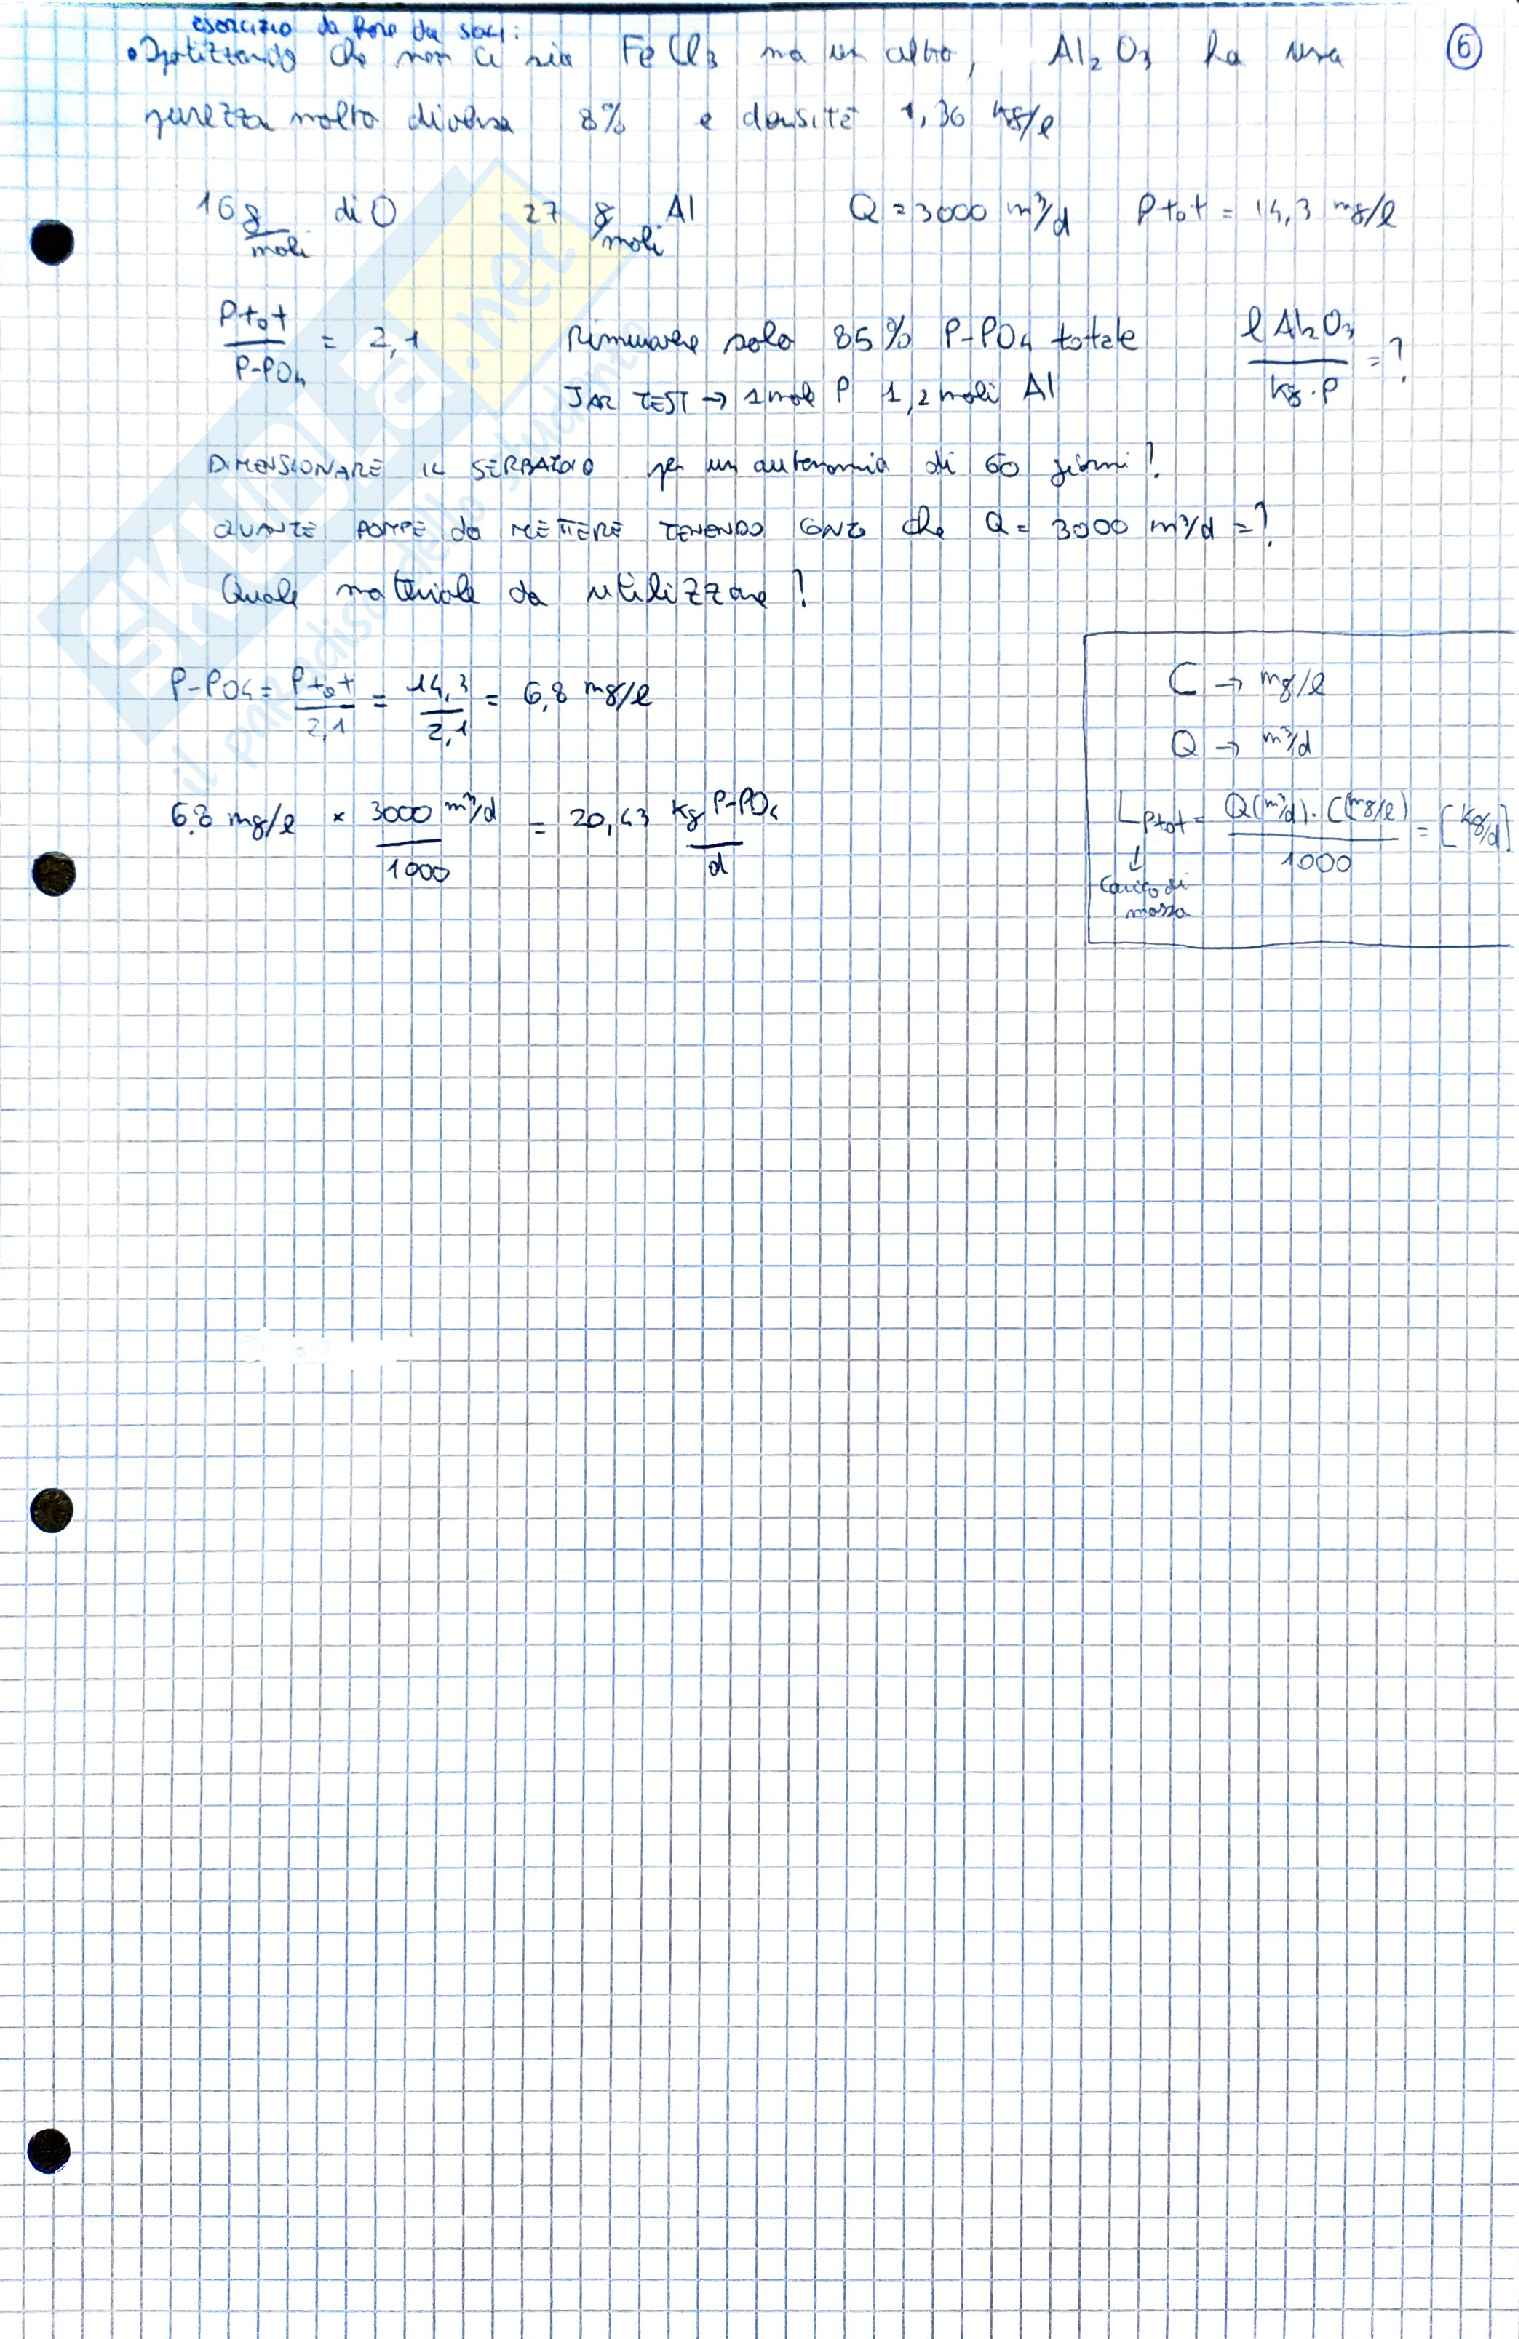 esercizio da fare da soli:
• Ipotizzando che non ci sia FeCl₃ ma un altro, Al₂O₃ ha una
6
purezza molto diversa 8% e densità 1,36 kg/l
16 g/moli di O 27 g/moli Al Q = 3000 m³/d Ptot = 14,3 mg/l
Ptot/P-PO₄ = 2,1 Rimuovere solo 85% P-PO₄ totale l Al₂O₃/kg·P = ?
JAR TEST → 1 mole P 1,2 moli Al
DIMENSIONARE IL SERBATOIO per un autonomia di 60 giorni?
QUANTE POMPE da METTERE TENENDO CONTO che Q = 3000 m³/d = ?
Quale materiale da utilizzare?
P-PO₄ = Ptot/2,1 = 14,3/2,1 = 6,8 mg/l
6,8 mg/l × 3000 m³/d / 1000 = 20,43 kg P-PO₄/d
C → mg/l
Q → m³/d
LPtot = Q(m³/d)·C(mg/l)/1000 = [kg/d]
↓
carico di
massa
SKUOLA.net
il paradiso dello studente